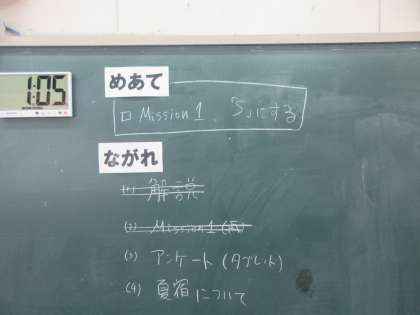 1:05
めあて
□ Mission 1 、5」にする
ながれ
(1) 解説
(2) Mission 1 (表)
(3) アンケート (タブレット)
(4) 夏宿について